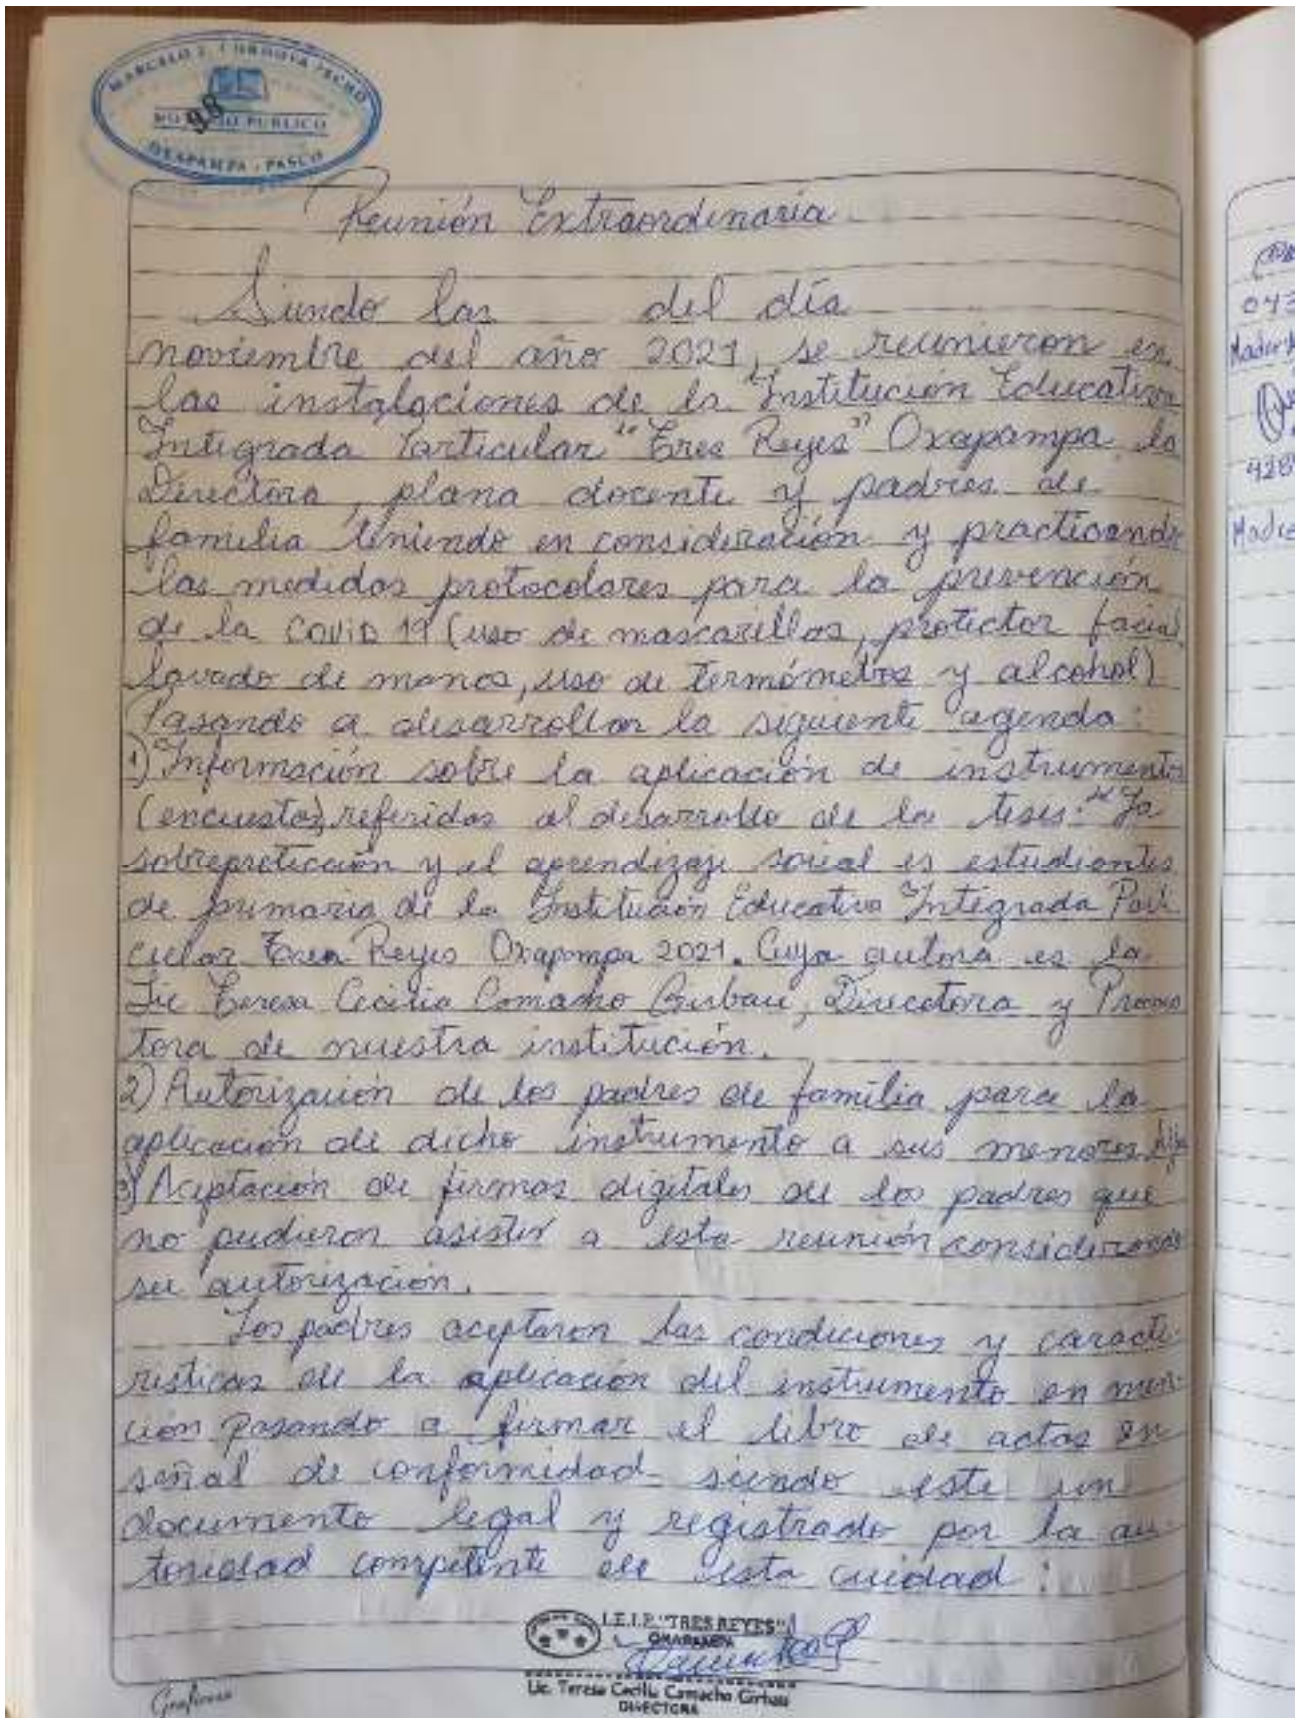 MARCELO J. CORDOVA
98
NOTARIO PUBLICO
OXAPAMPA - PASCO
Reunión Extraordinaria
Siendo las del día
noviembre del año 2021, se reunieron en
las instalaciones de la "Institución Educativa
Integrada Particular "Tres Reyes" Oxapampa, la
Directora, plana docente y padres de
familia teniendo en consideración y practicando
las medidas protocolares para la prevención
de la COVID 19 (uso de mascarillas, protector facial,
lavado de manos, uso de termómetros y alcohol)
Pasando a desarrollar la siguiente agenda:
1) Información sobre la aplicación de instrumentos
(encuestas) referidas al desarrollo de la tesis: "La
sobreprotección y el aprendizaje social es estudiantes
de primaria de la Institución Educativa Integrada Parti
cular Tres Reyes Oxapampa 2021. Cuya autora es la
Lic Teresa Cecilia Camacho Girbau, Directora y Promo
tora de nuestra institución.
2) Autorización de los padres de familia para la
aplicación de dicho instrumento a sus menores hijos
3) Aceptación de firmas digitales de los padres que
no pudieron asistir a esta reunión considerando
su autorización.
Los padres aceptaron las condiciones y caracte-
rísticas de la aplicación del instrumento en men-
ción pasando a firmar el libro de actas en
señal de conformidad siendo este un
documento legal y registrado por la au-
toridad competente de esta cuidad:
I.E.I.P. "TRES REYES"
OXAPAMPA
Lic. Teresa Cecilia Camacho Girbau
DIRECTORA
043
428